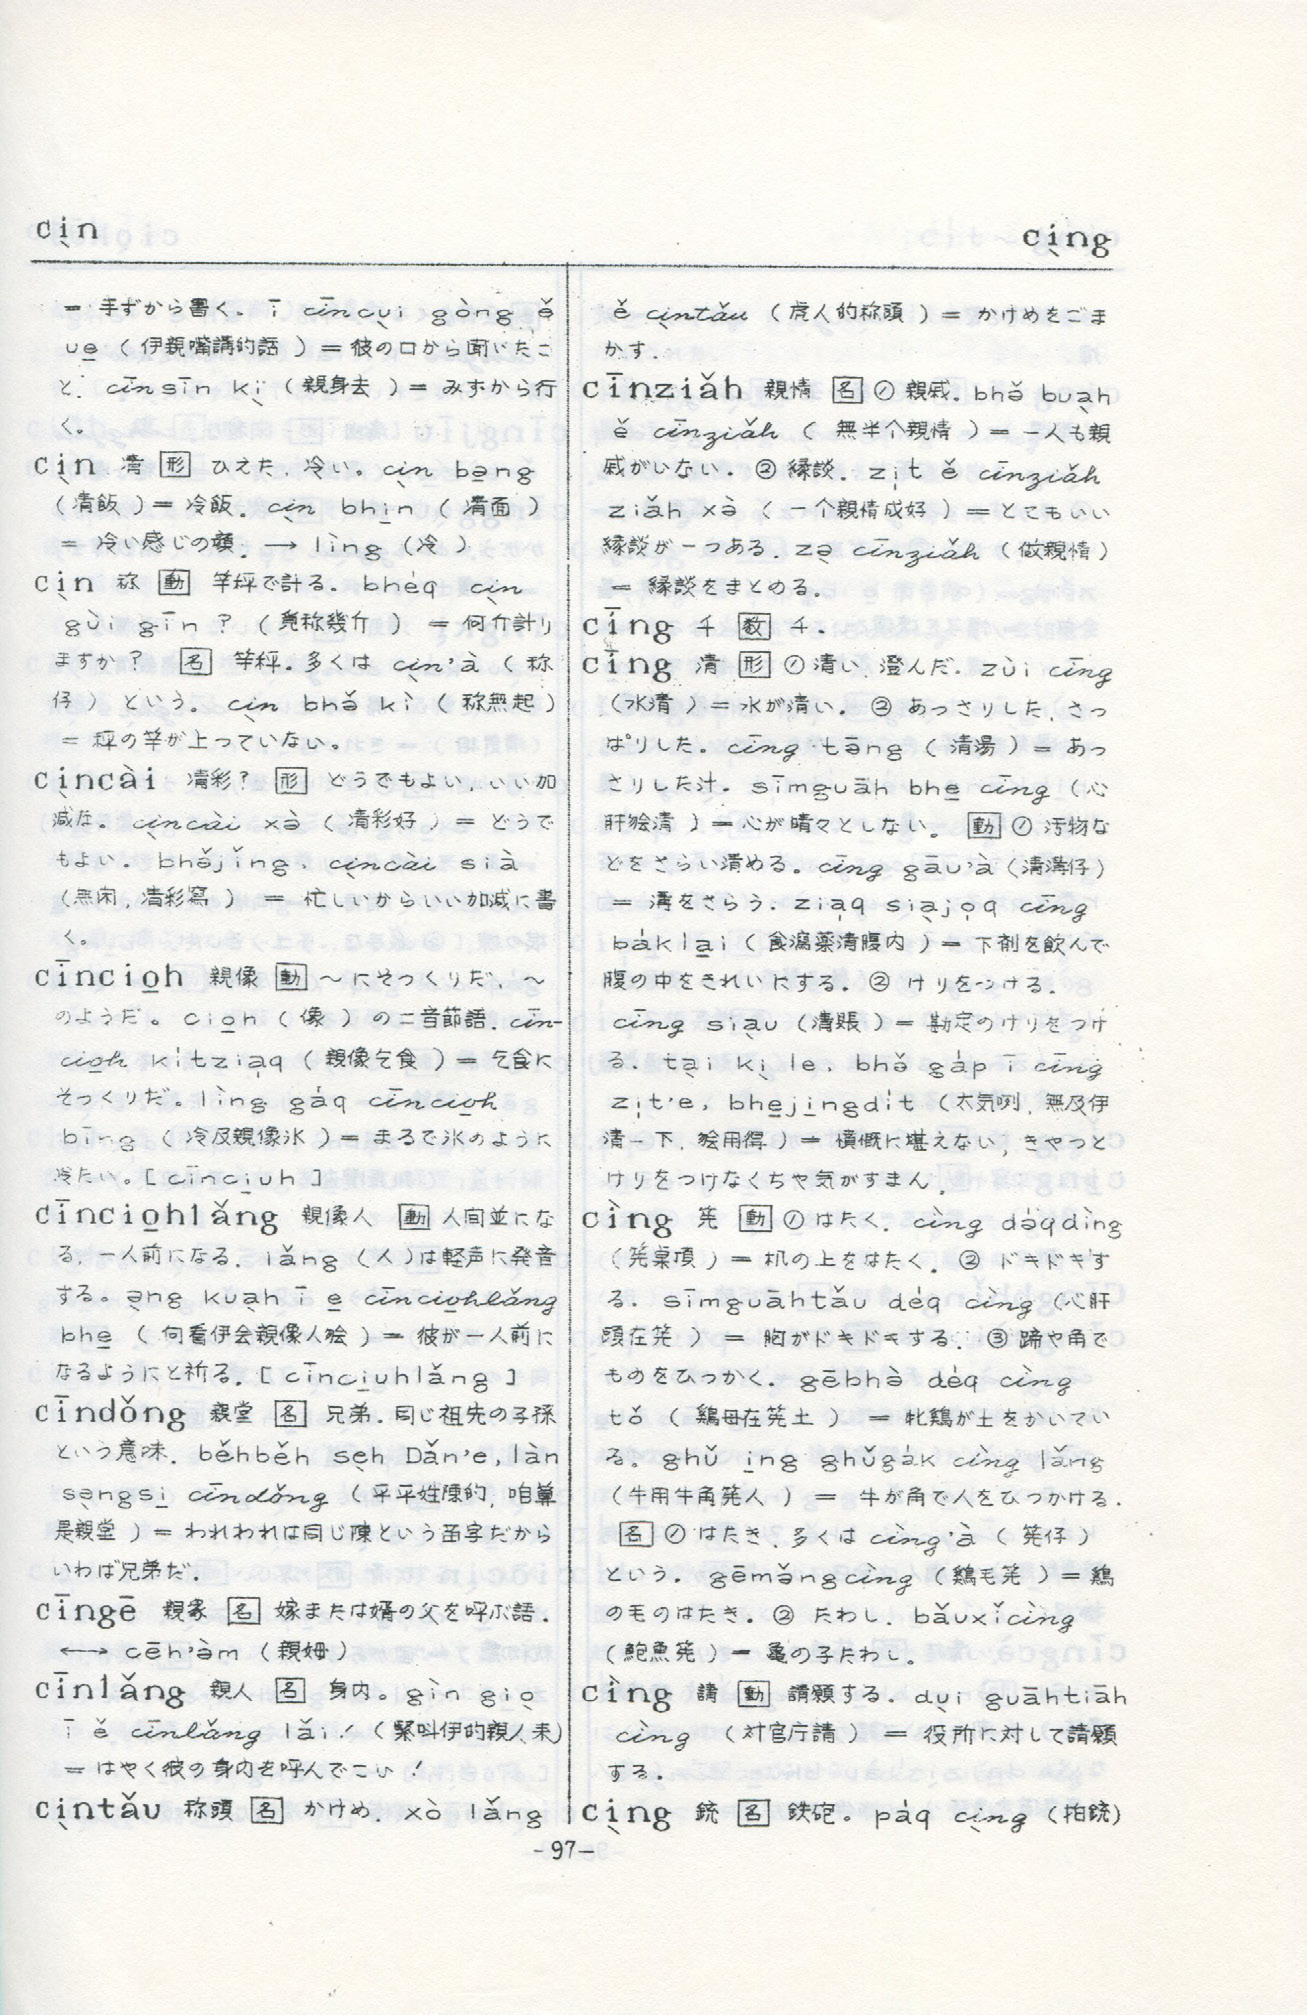 ci̖n
ci̖ng
＝手ずから書く。ī cīncu̖i gòng ě
ue̲（伊親嘴講的話）＝彼の口から聞いたこ
と. cīnsīn ki̖（親身去）＝みずから行
く。
ci̖n 凊 形 ひえた, 冷い。ci̖n bə̲ng
（凊飯）＝冷飯。ci̖n bhi̲n（凊面）
＝冷い感じの顔。→ lìng（冷）
ci̖n 称 動 竿秤で計る. bhéq ci̖n
gùi gīn?（覓称幾介）＝何介計り
ますか? 名 竿秤。多くは ci̖n'à（称
仔）という。ci̖n bhə̌ kì（称無起）
＝秤の竿が上っていない。
ci̖ncài 凊彩? 形 どうでもよい, いい加
減な。ci̖ncài xə̀（凊彩好）＝どうで
もよい. bhə̌jǐng, ci̖ncài sià
（無闲, 凊彩寫）＝忙しいからいい加減に書
く。
cīncio̲h 親像 動 〜にそっくりだ, 〜
のようだ。cio̲h（像）の二音節語. cīn-
cio̲h ki̍tzia̍q（親像乞食）＝乞食に
そっくりだ。lìng gáq cīncio̲h
bīng（冷及親像氷）＝まるで氷のように
冷たい。[cīnci̲uh]
cīncio̲hlǎng 親像人 動 人間並にな
る, 一人前になる. lǎng（人）は軽声に発音
する。ə̖ng kua̖h ī e̲ cīncio̲hlǎng
bhe̲（向看伊会親像人𣍐）＝彼が一人前に
なるようにと祈る. [cīnci̲uhlǎng]
cīndǒng 親堂 名 兄弟. 同じ祖先の子孫
という意味. běhběh se̖h Dǎn'e, làn
sə̖ngsi̲ cīndǒng（平平姓陳的, 咱算
是親堂）＝われわれは同じ陳という苗字だから
いわば兄弟だ.
cīngē 親家 名 嫁または婿の父を呼ぶ語.
←→ cēh'àm（親姆）
cīnlǎng 親人 名 身内。gìn gio̖
ī ě cīnlǎng lǎi!（緊叫伊的親人来）
＝はやく彼の身内を呼んでこい!
ci̖ntǎu 称頭 名 かけめ. xò lǎng
ě ci̖ntǎu（虎人的称頭）＝かけめをごま
かす.
cīnziǎh 親情 名 ① 親戚. bhə̌ bua̖h
ě cīnziǎh（無半个親情）＝一人も親
戚がいない. ② 縁談. zi̍t ě cīnziǎh
ziǎh xə̀（一个親情成好）＝とてもいい
縁談が一つある. zə̖ cīnziǎh（做親情）
＝縁談をまとめる.
cīng 千 数 千.
cīng 清 形 ① 清い, 澄んだ. zùi cīng
（水清）＝水が清い. ② あっさりした, さっ
ぱりした。cīng tə̄ng（清湯）＝あっ
さりした汁. sīmguāh bhe̲ cīng（心
肝𣍐清）＝心が晴々としない。動 ① 汚物な
どをさらい清める. cīng gāu'à（清溝仔）
＝溝をさらう. zia̍q sia̖jo̍q cīng
báklai̲（食瀉薬清腹内）＝下剤を飲んで
腹の中をきれいにする. ② けりをつける.
cīng siàu（清賬）＝勘定のけりをつけ
る. ta̖i ki̖ le, bhə̌ gáp ī cīng
zi̍t'e, bhe̲ji̲ngdít（太気咧, 無及伊
清一下, 𣍐用得）＝憤慨に堪えない, きゃっと
けりをつけなくちゃ気がすまん.
cìng 筅 動 ① はたく. cìng də́qdìng
（筅桌頂）＝机の上をはたく. ② ドキドキす
る. sīmguāhtǎu déq cìng（心肝
頭在筅）＝胸がドキドキする. ③ 蹄や角で
ものをひっかく. gēbhə̀ déq cìng
tǒ（鶏母在筅土）＝牝鶏が土をかいてい
る。ghǔ i̲ng ghǔgák cìng lǎng
（牛用牛角筅人）＝牛が角で人をひっかける.
名 ① はたき. 多くは cìng'à（筅仔）
という. gēmə̌ngcìng（鶏毛筅）＝鶏
の毛のはたき. ② たわし. bāuxǐcìng
（鮑魚筅）＝亀の子たわし.
cìng 請 動 請願する. du̖i guāhtiāh
cìng（対官庁請）＝役所に対して請願
する.
ci̖ng 銃 名 鉄砲。páq ci̖ng（拍銃）
-97-